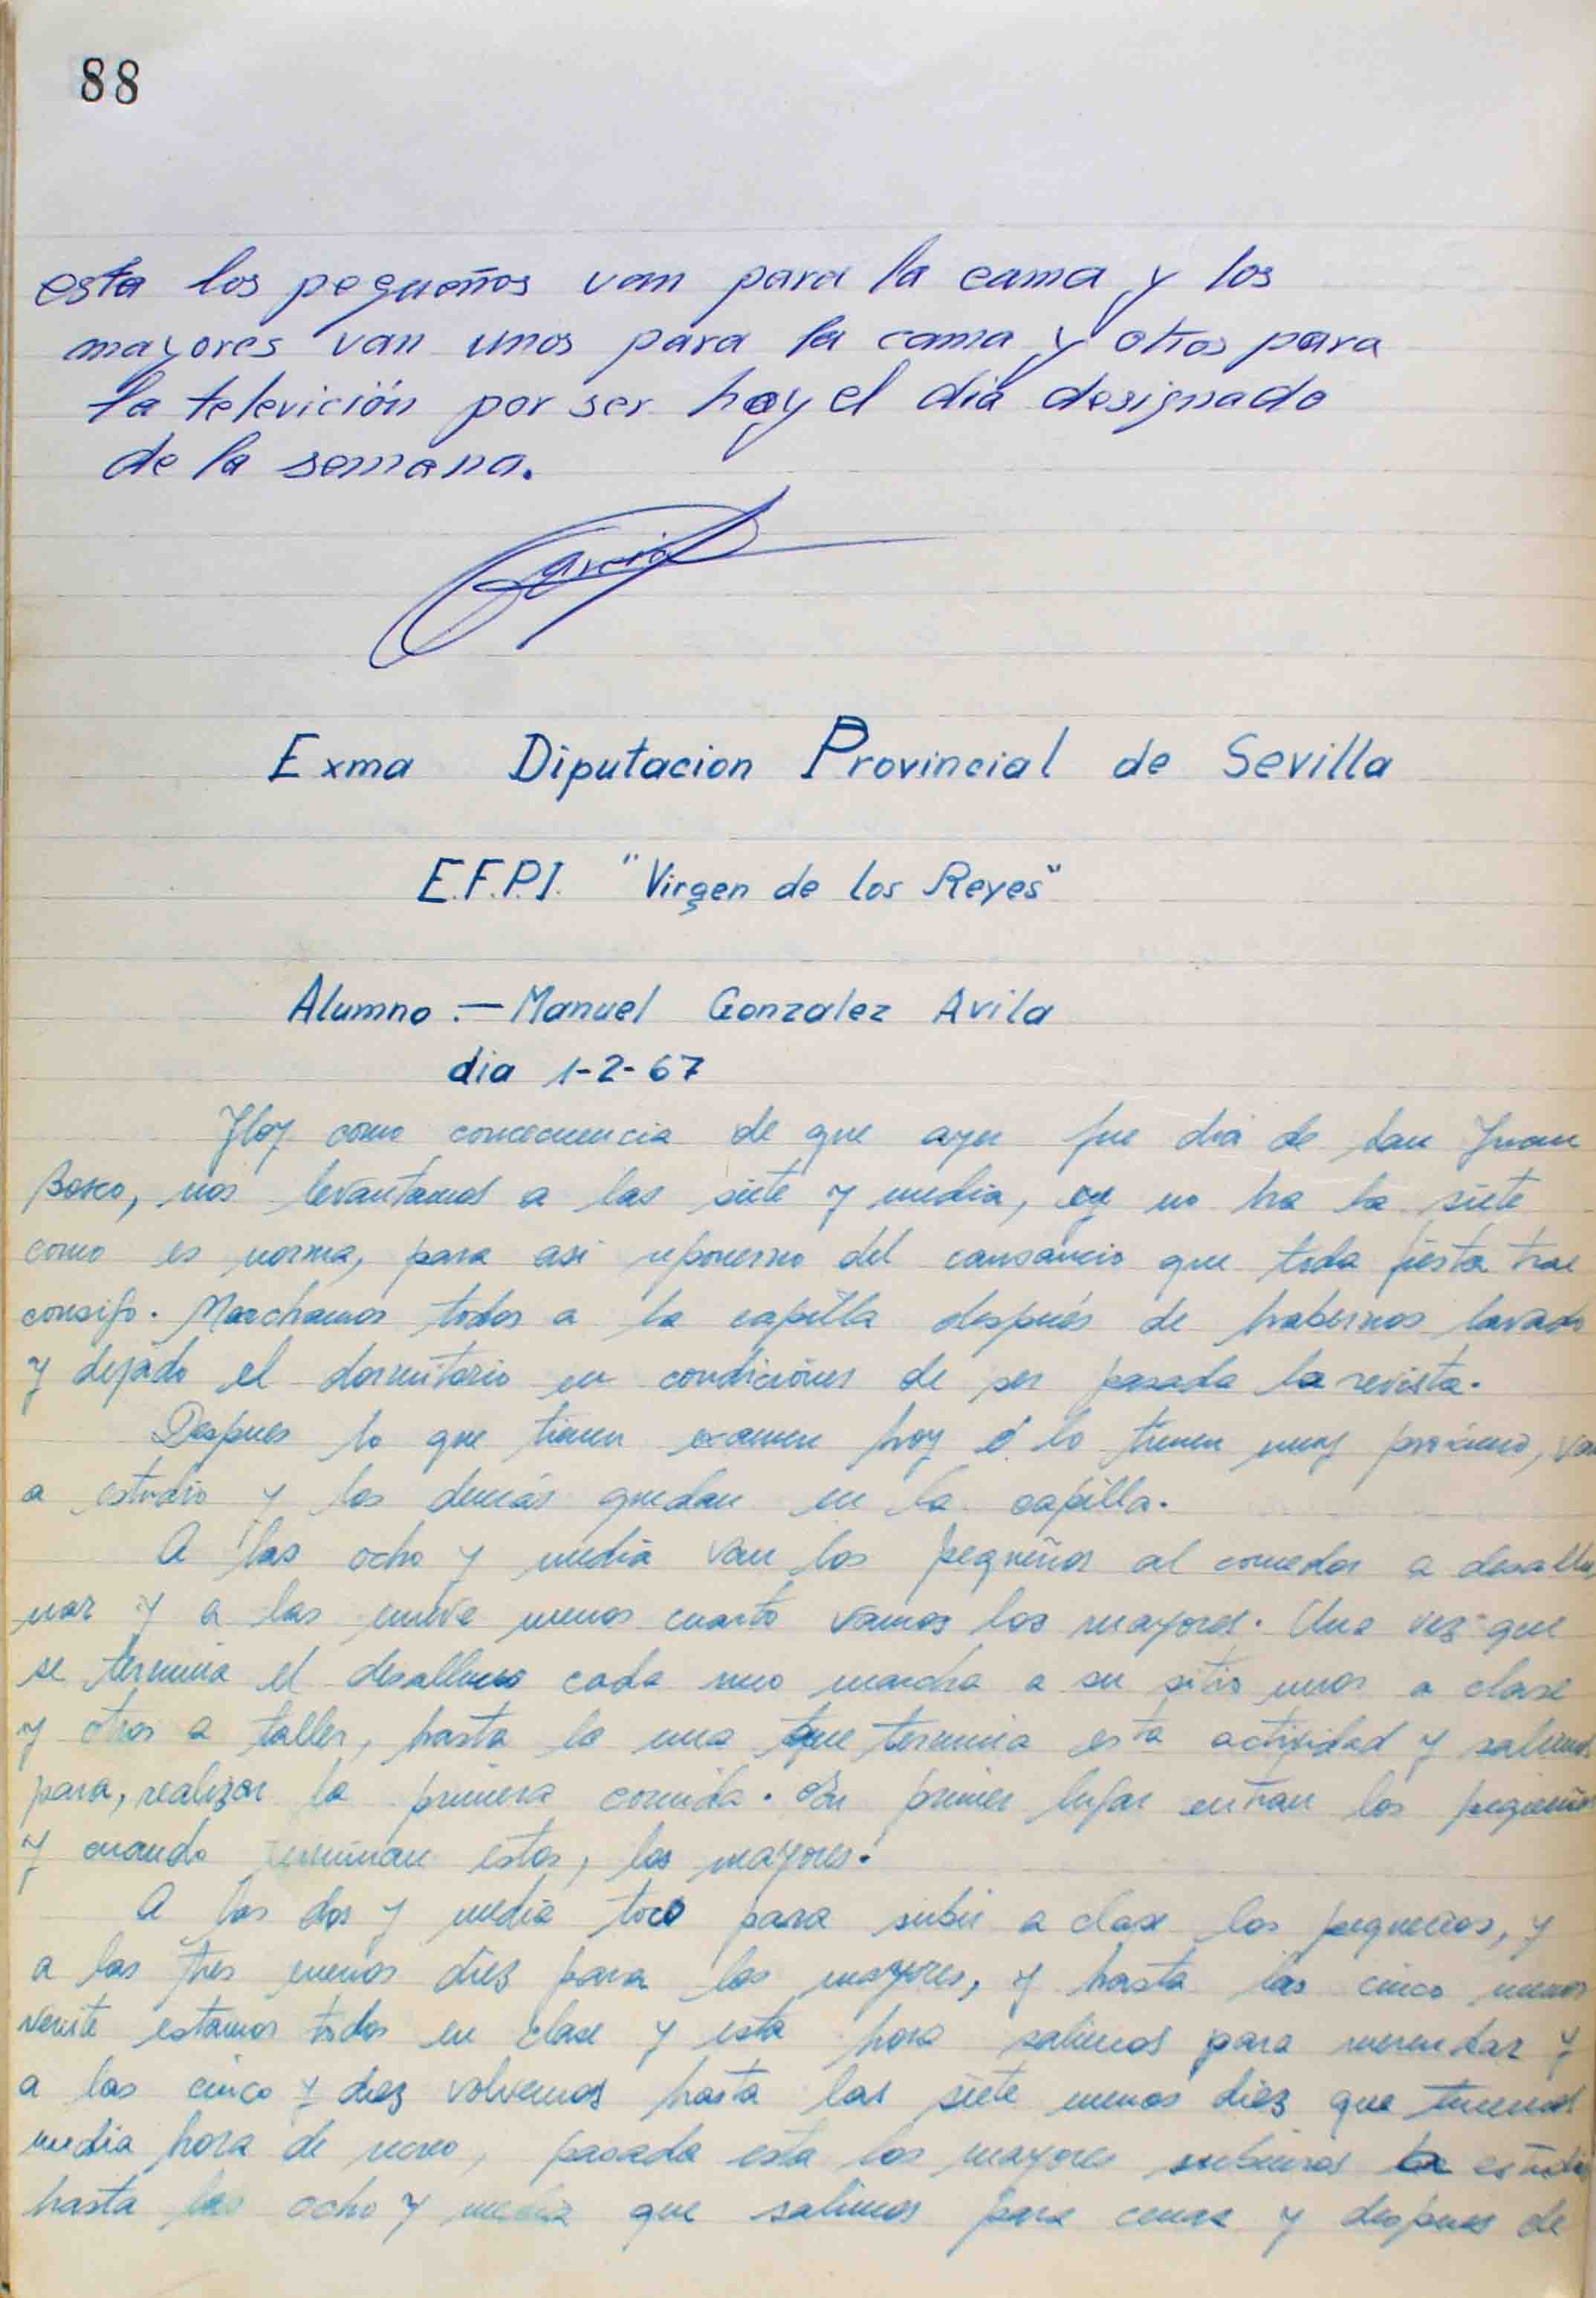 88
esta los pequeños van para la cama y los
mayores van unos para la cama y otros para
la televición por ser hoy el dia designado
de la semana.
Garcia
Exma Diputacion Provincial de Sevilla
E.F.P.I. "Virgen de los Reyes"
Alumno.— Manuel Gonzalez Avila
dia 1-2-67
Hoy como concecuencia de que ayer fue dia de San Juan
Bosco, nos levantamos a las siete y media, y no ha la siete
como es norma, para asi reponerno del cansancio que toda fiesta trae
consigo. Marchamos todos a la capilla después de habernos lavado
y dejado el dormitorio en condiciónes de ser pasada la revista.
Despues lo que tienen examen hoy ó lo tienen muy proximo, van
a estudio y los demás quedan en la capilla.
A las ocho y media van los pequeños al comedor a desallu
nar y a las nueve menos cuarto vamos los mayores. Una vez que
se termina el desalluno cada uno marcha a su sitio unos a clase
y otros a taller, hasta la una que termina esta actividad y salimos
para, realizar la primera comida. En primer lugar entran los pequeños
y cuando terminan estos, los mayores.
A las dos y media toco para subir a clase los pequeños, y
a las tres menos diez para los mayores, y hasta las cinco menos
veinte estamos todos en clase y esta hora salimos para merendar y
a las cinco y diez volvemos hasta las siete menos diez que tenemos
media hora de recreo, pasada esta los mayores subimos a estudio
hasta las ocho y media que salimos para cenar y despues de